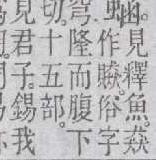 蜬。見釋魚猋
作贆。俗字
穹隆而腹下
切。十五部。
見君子。錫我